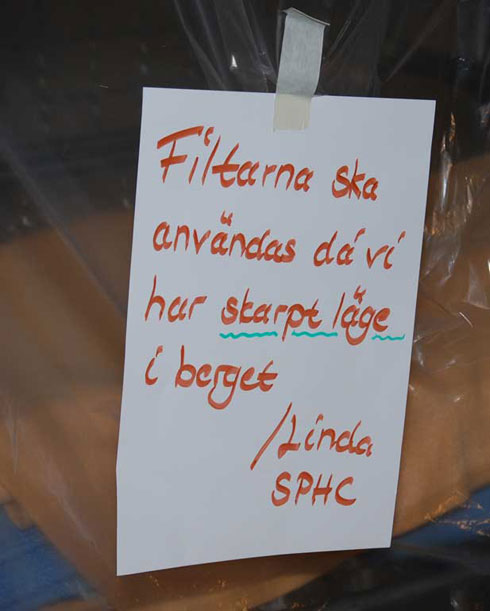 Filtarna ska
användas då vi
har skarpt läge
i berget
/Linda
SPHC